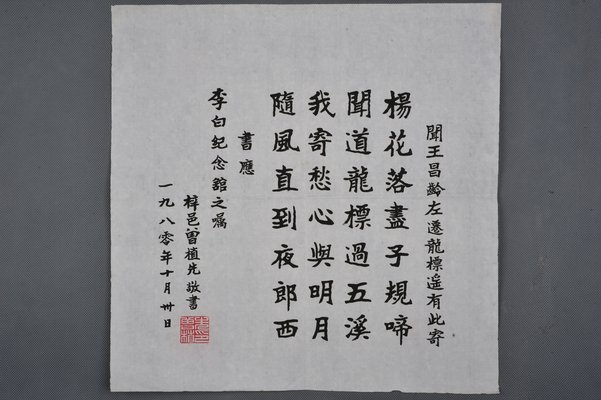 聞王昌齡左遷龍標遥有此寄
楊花落盡子規啼
聞道龍標過五溪
我寄愁心與明月
隨風直到夜郎西
書應
李白紀念館之囑
梓邑曾植先敬書
一九八零年十月卅日